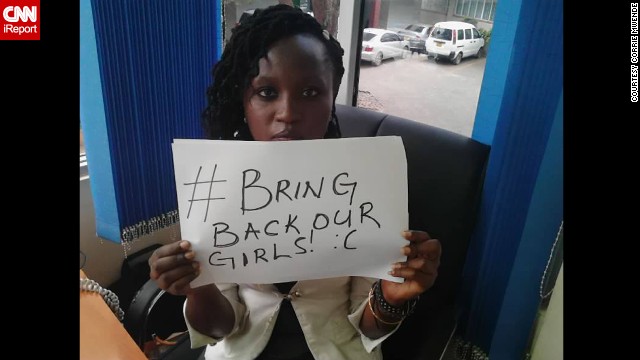 CNN
iReport
COURTESY CORRIE MWENDE
# BRING
BACK OUR
GIRLS! :C